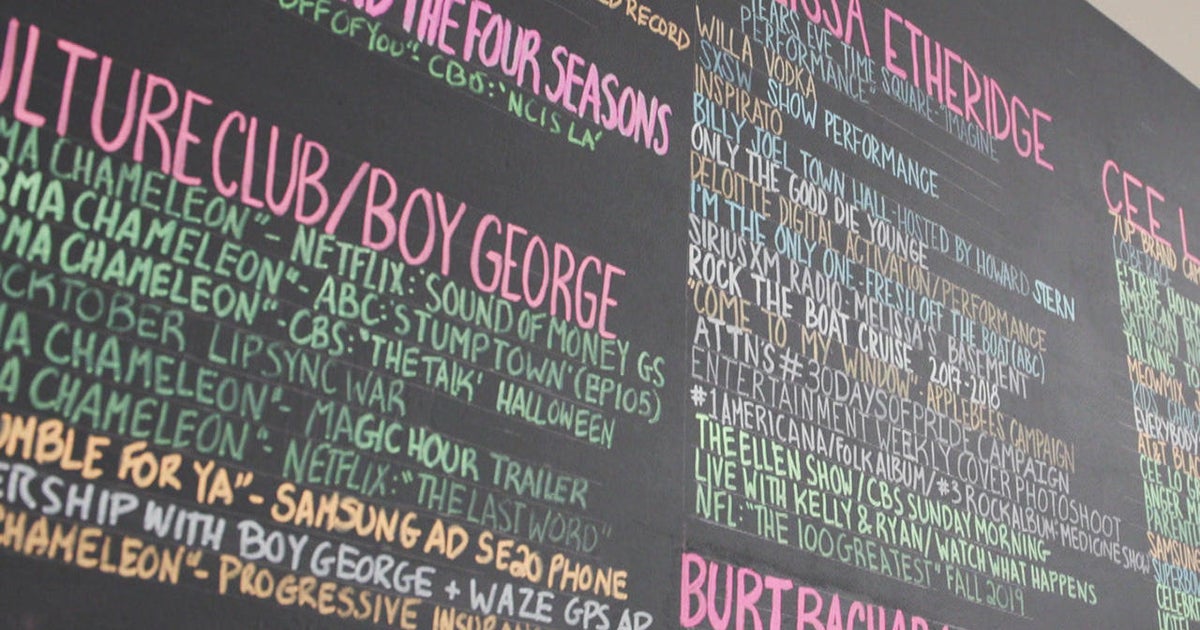 THE FOUR SEASONS
OFF OF YOU"- CBS: 'NCIS LA'
CULTURE CLUB/BOY GEORGE
MA CHAMELEON"- NETFLIX: SOUND OF MONEY GS
RMA CHAMELEON"- ABC: STUMPTOWN' (EP105)
MA CHAMELEON"- CBS: 'THE TALK' HALLOWEEN
OCKTOBER LIPSYNC WAR
MA CHAMELEON"- MAGIC HOUR TRAILER
A CHAMELEON"- NETFLIX: "THE LAST WORD"
UMBLE FOR YA"- SAMSUNG AD SE20 PHONE
ERSHIP WITH BOY GEORGE + WAZE GPS AP
CHAMELEON"- PROGRESSIVE
RECORD
ISSA ETHERIDGE
EARS EVE TIME SQUARE- "IMAGINE
PERFORMANCE"
WILLA VODKA
SXSW SHOW PERFORMANCE
INSPIRATO
BILLY JOEL TOWN HALL-HOSTED BY HOWARD STERN
ONLY THE GOOD DIE YOUNGE
DELOITTE DIGITAL ACTIVATION/PERFORMANCE
I'M THE ONLY ONE-FRESH OFF THE BOAT(ABC)
SIRIUSXM RADIO: MELISSA'S BASEMENT
ROCK THE BOAT CRUISE 2017-2018
"COME TO MY WINDOW" APPLEBEES CAMPAIGN
ATTN'S #30DAYSOFPRIDE CAMPAIGN
ENTERTAINMENT WEEKLY COVER PHOTOSHOOT
#1 AMERICANA/FOLK ALBUM/#3 ROCK ALBUM: MEDICINE SHOW
THE ELLEN SHOW/CBS SUNDAY MORNING
LIVE WITH KELLY & RYAN/WATCH WHAT HAPPENS
NFL: "THE 100 GREATEST" FALL 2019
BURT BACHAR
CEE L
E! TRUE
AMERICAN
TALKING
MEOWMIX
EVERYBODY
AT&T
CEE LO
ANGER
SAMSUNG